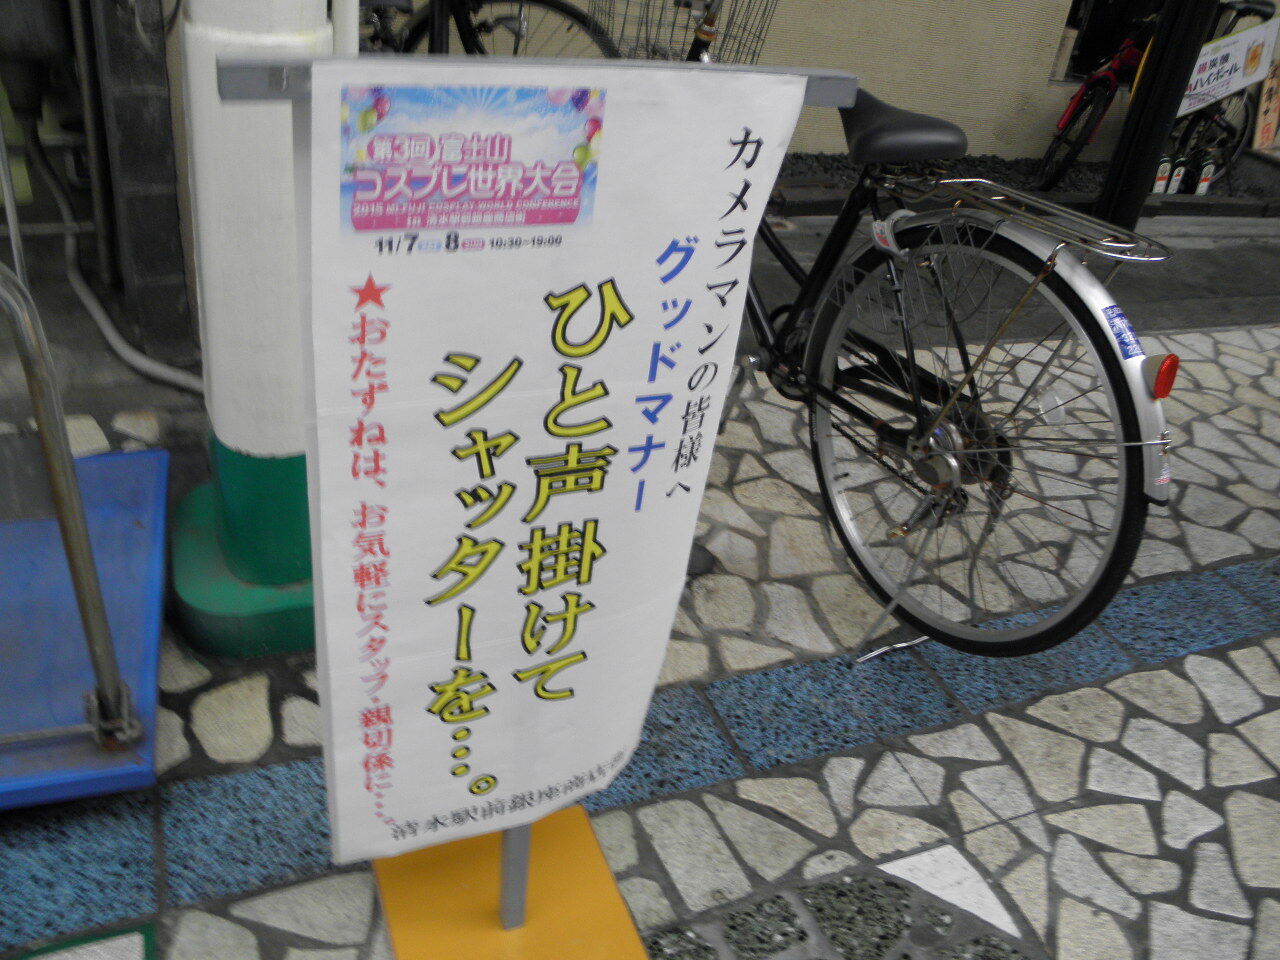 第3回 富士山
コスプレ世界大会
2015 Mt.FUJI COSPLAY WORLD CONFERENCE
in 清水駅前銀座商店街
11/7 8 10:30~19:00
カメラマンの皆様へ
グッドマナー
ひと声掛けて
シャッターを…。
★おたずねは、お気軽にスタッフ・親切係に…。
清水駅前銀座商店街
ハイボール